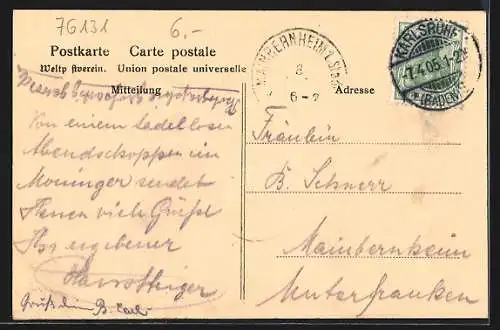 76131
6.-
Postkarte Carte postale
Weltpostverein. Union postale universelle
Mitteilung
Adresse
MAINBERNHEIM
8
6-7
KARLSRUHE
7.4.05.1-2N
(BADEN)
Von einem tadellosen
Abendschoppen im
Moninger sendet
Ihnen viele Grüße
Ihr ergebener
Fräulein
B. Schnerr
Mainbernheim
Unterfranken